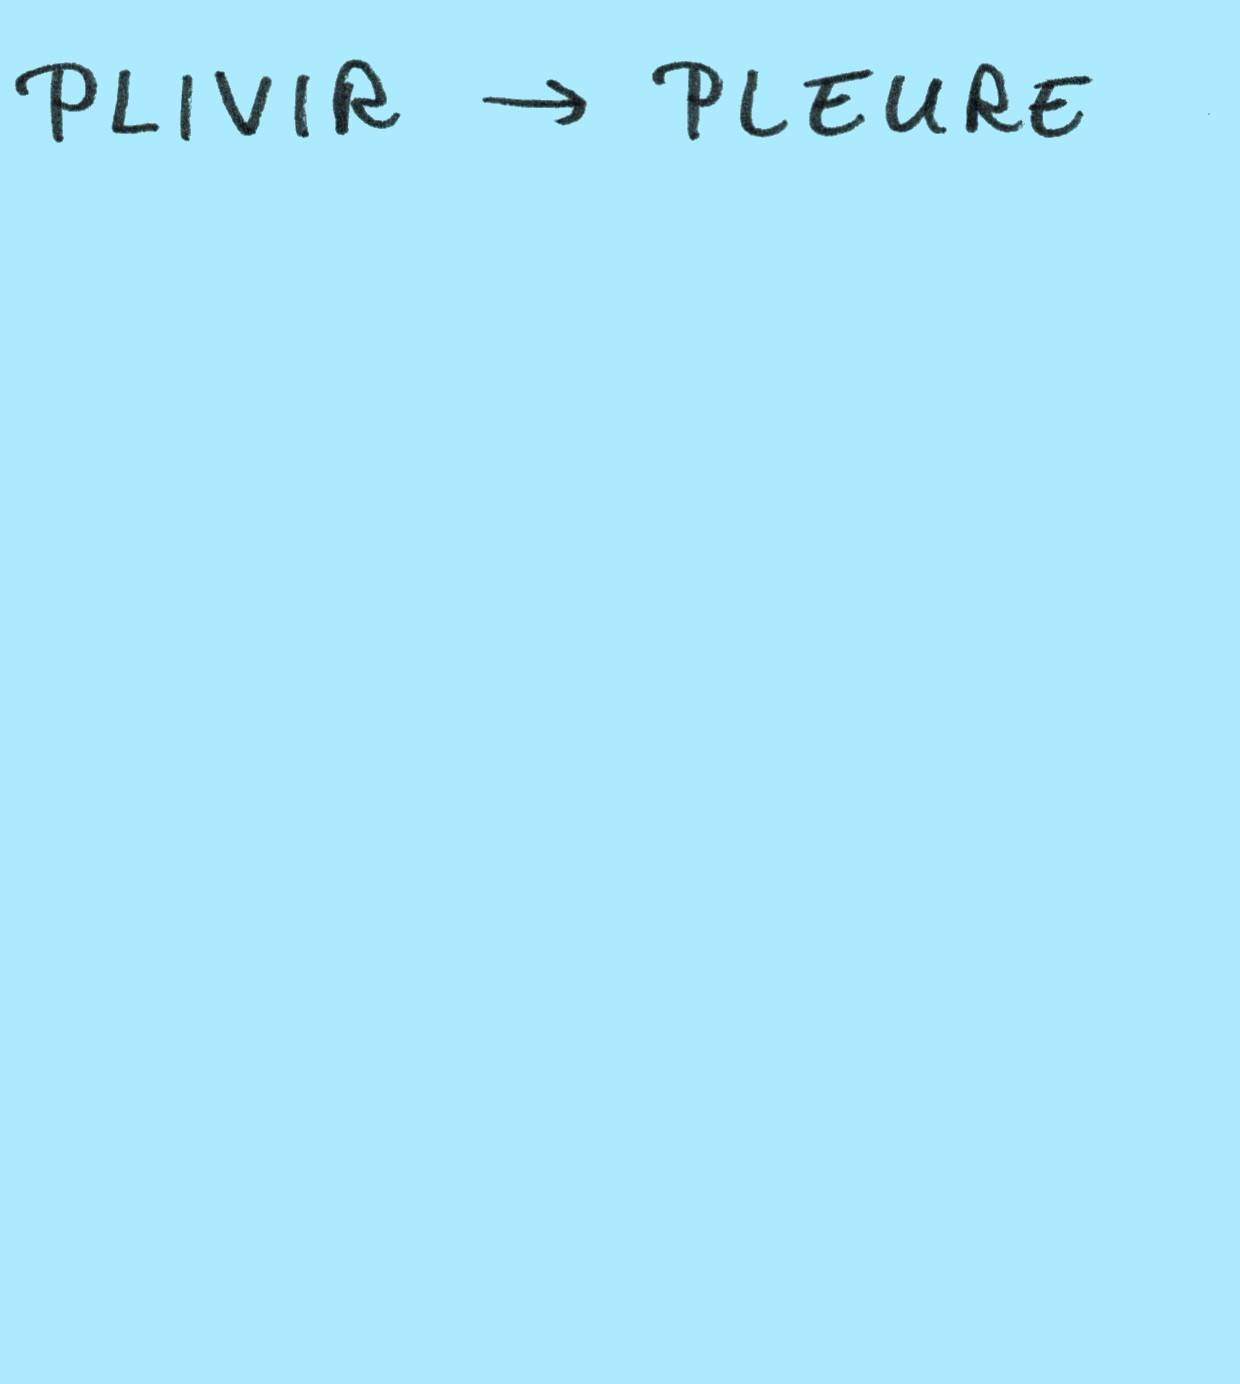 PLIVIR → PLEURE